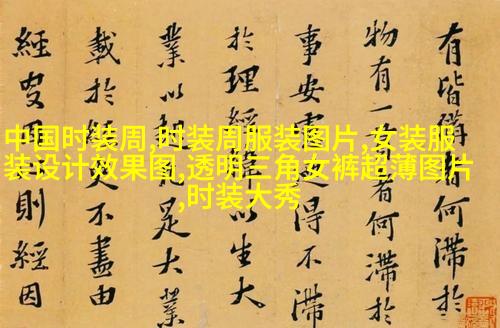 中国时装周,时装周服装图片,女装服
装设计效果图,透明三角女裤超薄图片
,时装大秀
有皆有何滯於
物有一有何滯於
事安得不滯
於理經以生大
業以足大業
載於不盡由
經則經因